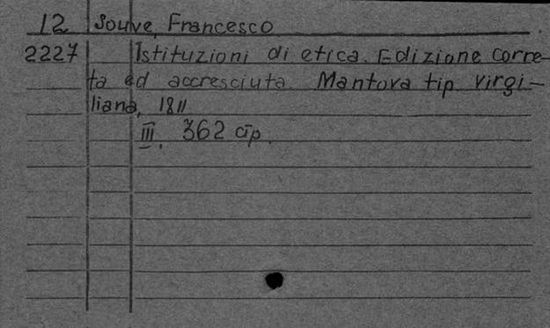 12 Souve, Francesco
2227 Istituzioni di etica. Edizione corre-
ta ed accresciuta. Mantova tip. Virgi-
liana, 1811
III, 362 cip.